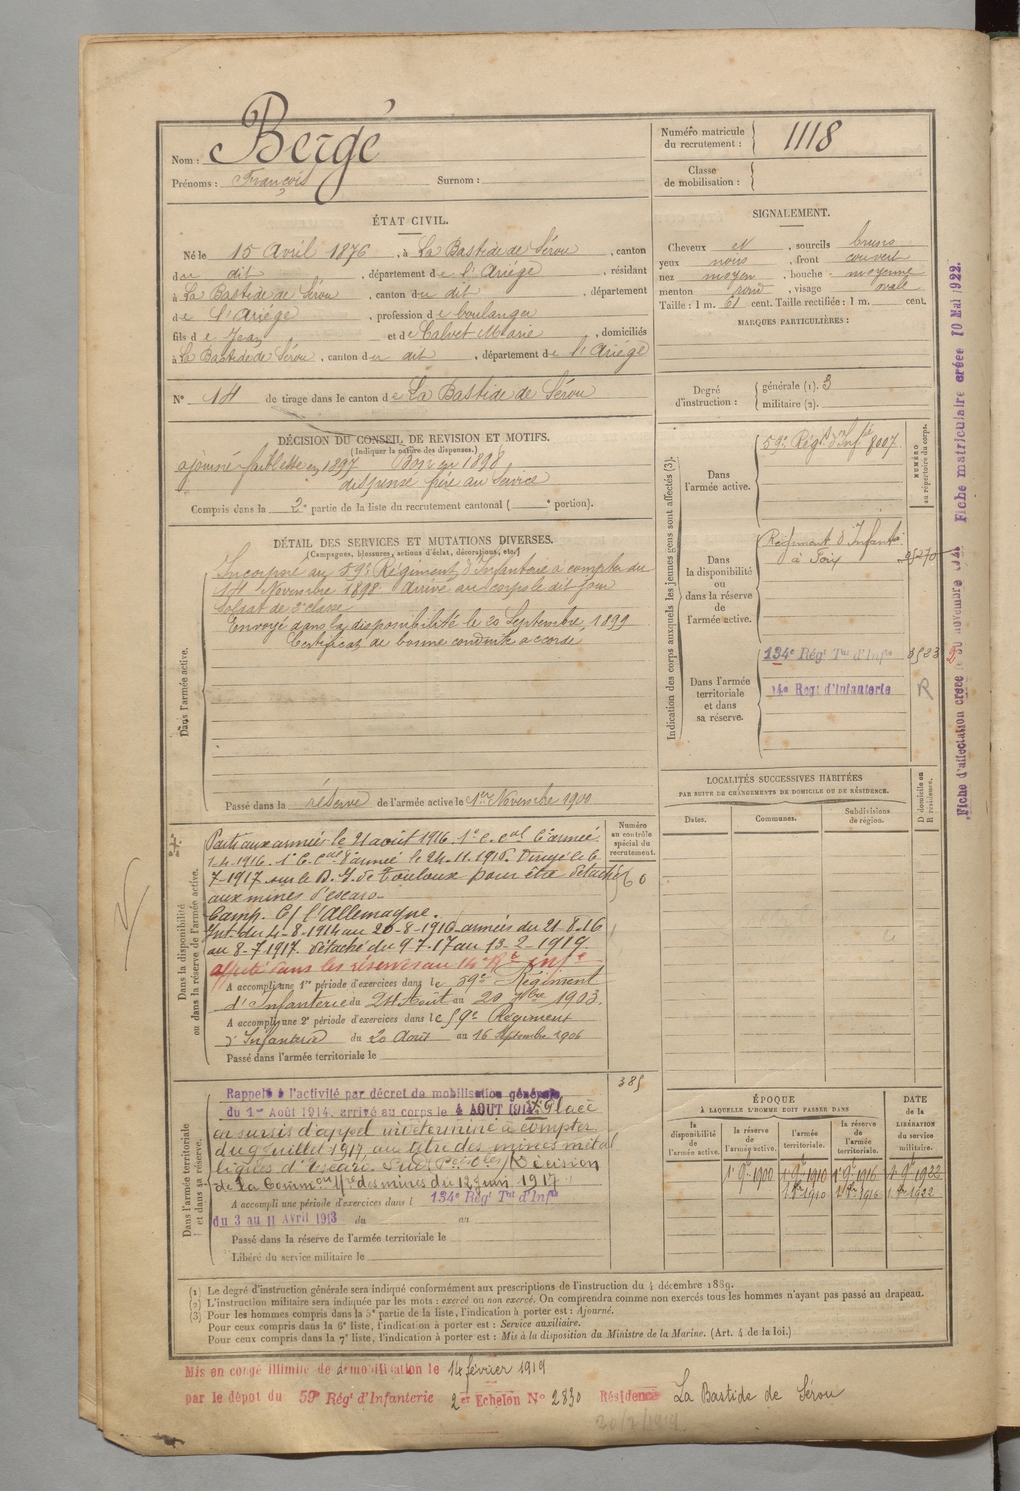 Nom : Bergé
Prénoms : François Surnom :
Numéro matricule du recrutement : 1118
Classe de mobilisation :
ÉTAT CIVIL.
Né le 15 Avril 1876, à La Bastide de Sérou, canton
du dit, département de l'Ariège, résidant
à La Bastide de Sérou, canton du dit, département
de l'Ariège, profession de boulanger
fils de Jean et de Calvet Marie, domiciliés
à La Bastide de Sérou, canton du dit, département de l'Ariège
N° 14 de tirage dans le canton de La Bastide de Sérou
SIGNALEMENT.
Cheveux N, sourcils bruns
yeux noirs, front couvert
nez moyen, bouche moyenne
menton rond, visage ovale
Taille : 1 m. 61 cent. Taille rectifiée : 1 m. cent.
MARQUES PARTICULIÈRES :
Degré d'instruction : générale (1). 3
militaire (2).
DÉCISION DU CONSEIL DE REVISION ET MOTIFS.
(Indiquer la nature des dispenses.)
ajourné faiblesse en 1897 Bon en 1898
dispensé frère au service
Compris dans la 2e partie de la liste du recrutement cantonal ( e portion).
DÉTAIL DES SERVICES ET MUTATIONS DIVERSES.
(Campagnes, blessures, actions d'éclat, décorations, etc.)
Dans l'armée active.
Incorporé au 59e Régiment d'Infanterie à compter du
14 Novembre 1898 arrivé au corps le dit jour
soldat de 2e classe
Envoyé dans la disponibilité le 20 Septembre 1899
Certificat de bonne conduite accordé
Passé dans la réserve de l'armée active le 1er Novembre 1900
Indication des corps auxquels les jeunes gens sont affectés (3).
NUMÉRO au répertoire du corps.
Dans l'armée active.
59e Régt d'Infie 8007
Dans la disponibilité ou dans la réserve de l'armée active.
Régiment d'Infantie
à Foix
Dans l'armée territoriale et dans sa réserve.
134e Régt Tal d'Infie
14e Regt d'Infanterie R
LOCALITÉS SUCCESSIVES HABITÉES
PAR SUITE DE CHANGEMENTS DE DOMICILE OU DE RÉSIDENCE.
Dates. Communes. Subdivisions de région. D domicile ou R résidence.
Dans la disponibilité ou dans la réserve de l'armée active.
Numéro au contrôle spécial du recrutement.
Parti aux armées le 21 août 1916.
7-1917 sur le D. I. de Toulouse pour être détaché
aux mines d'escaro.
Camp. C/ l'Allemagne.
Int. du 4-8-1914 au 20-8-1916 armées du 21-8-16
au 8-7-1917. détaché du 9-7-17 au 13-2-1919
affecté dans les réserves au 14e Rt Infie
A accompli une 1re période d'exercices dans le 59e Régiment
d'Infanterie du 24 Août au 20 7bre 1903.
A accompli une 2e période d'exercices dans le 59e Régiment
d'Infanterie du 20 Août au 16 Septembre 1906
Passé dans l'armée territoriale le
Dans l'armée territoriale et dans sa réserve.
385
Rappelé à l'activité par décret de mobilisation générale
du 1er Août 1914. arrivé au corps le 4 AOUT 1914. Placé
en sursis d'appel indéterminé à compter
du 9 juillet 1917, au titre des mines métal
liques d'Escaro Sud (Pées Oles) Décision
de la Comm des mines du 12 juin 1917
A accompli une période d'exercices dans l 134e Régt Tal d'Infie
du 3 au 11 Avril 1913 du au
Passé dans la réserve de l'armée territoriale le
Libéré du service militaire le
ÉPOQUE
À LAQUELLE L'HOMME DOIT PASSER DANS
la disponibilité de l'armée active. la réserve de l'armée active. l'armée territoriale. la réserve de l'armée territoriale.
DATE de la LIBÉRATION du service militaire.
1er 9bre 1900 1er 9bre 1910 1er 9bre 1916 1er 9bre 1922
1910 1916 1922
(1) Le degré d'instruction générale sera indiqué conformément aux prescriptions de l'instruction du 4 décembre 1889.
(2) L'instruction militaire sera indiquée par les mots : exercé ou non exercé. On comprendra comme non exercés tous les hommes n'ayant pas passé au drapeau.
(3) Pour les hommes compris dans la 5e partie de la liste, l'indication à porter est : Ajourné.
Pour ceux compris dans la 6e liste, l'indication à porter est : Service auxiliaire.
Pour ceux compris dans la 7e liste, l'indication à porter est : Mis à la disposition du Ministre de la Marine. (Art. 4 de la loi.)
Mis en congé illimité de démobilisation le 14 février 1919
par le dépôt du 59e Régt d'Infanterie 2e Echelon N° 2830 Résidence La Bastide de Sérou
Fiche matriculaire créée 10 Mai 1922.
Fiche d'affectation créée le 30 novembre